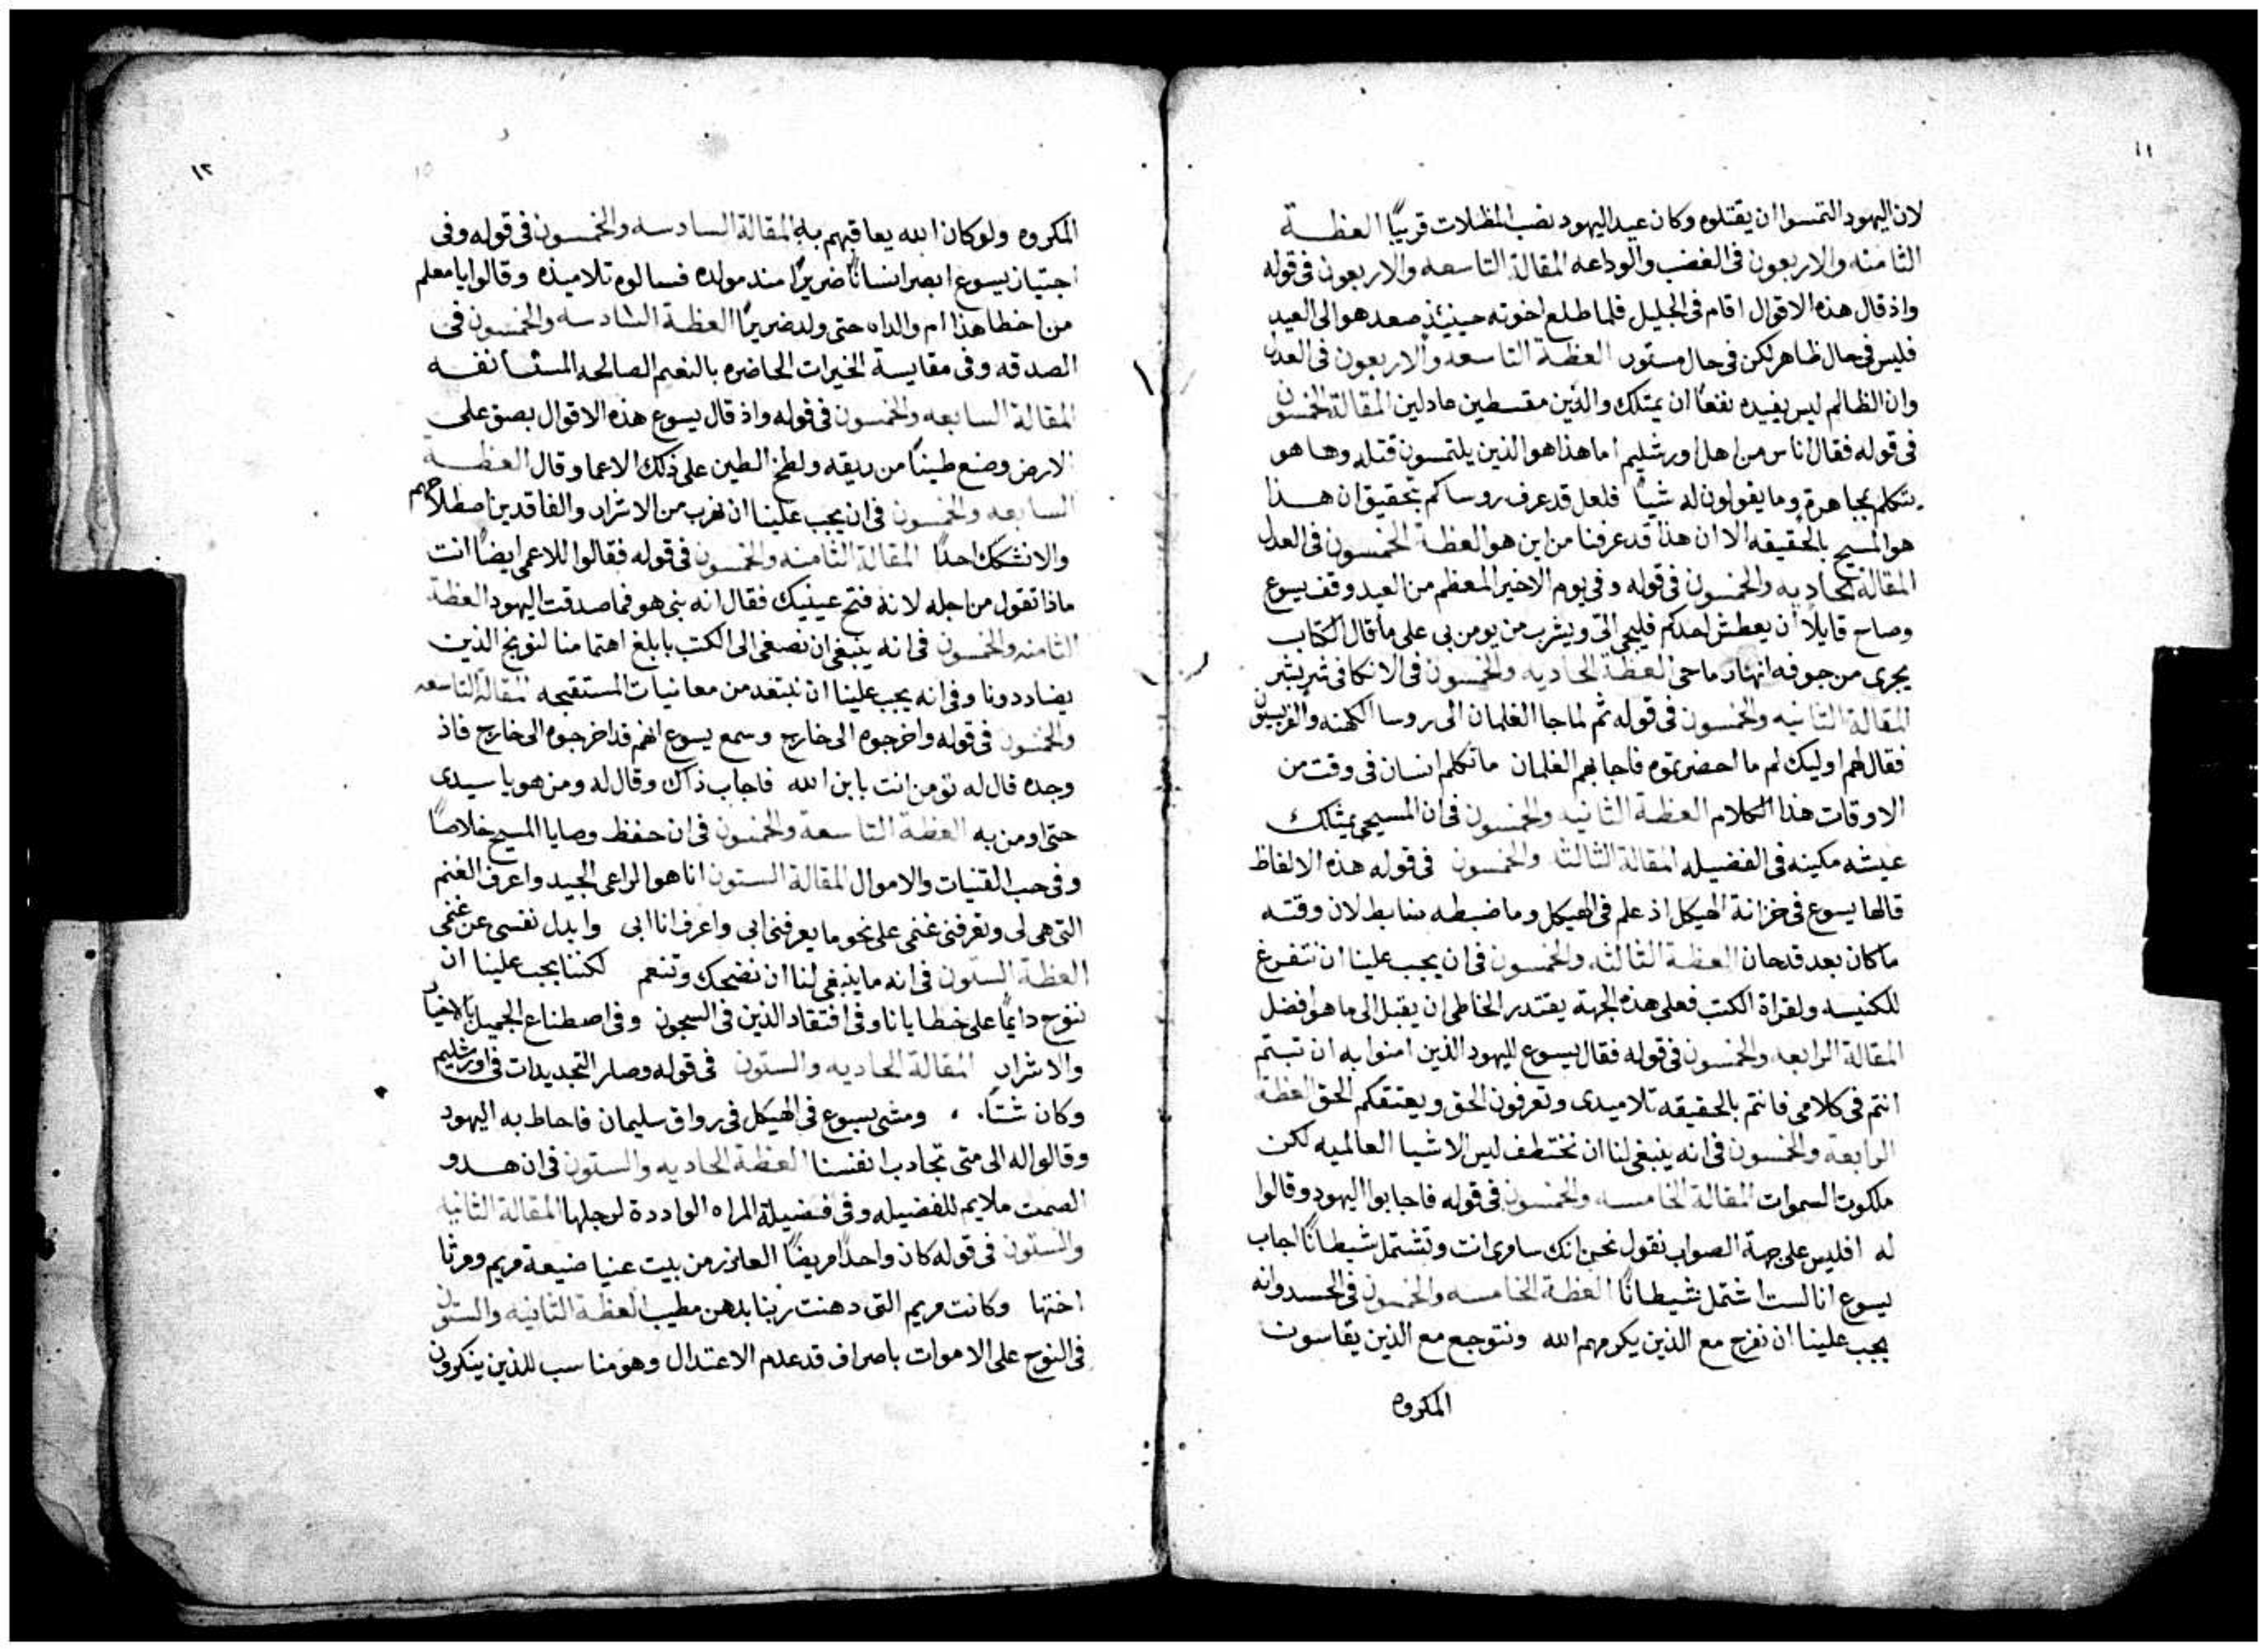 ١١
لان اليهود التمسوا ان يقتلوه وكان عيد اليهود نصب المظلات قريبًا العظــة
الثامنه والاربعون فى الغضب والوداعه المقالة التاسعه والاربعون فى قوله
واذ قال هذه الاقوال اقام فى الجليل فلما طلع اخوته حينيذٍ صعد هو الى العيد
فليس فى حال ظاهر لكن فى حال مستور العظة التاسعه والاربعون فى العدل
وان الظالم ليس يفيده نفعًا ان يمتلك والذين مقسطين عادلين المقالة الخمسون
فى قوله فقال اناس من اهل اورشليم اما هذا هو الذين يلتمسون قتله وها هو
يتكلم مجاهرة وما يقولون له شيًا فلعل قد عرف روساكم بتحقيق ان هــذا
هو المسيح بالحقيقه الا ان هذا قد عرفنا من اين هو العظة الخمسون فى العدل
المقالة الحاديه والخمسون فى قوله وفى يوم الاخير المعظم من العيد وقف يسوع
وصاح قايلاً ان يعطش احدكم فليجى الىّ ويشرب من يومن بى على ما قال الكتاب
يجرى من جوفه انهار ما حى العظة الحاديه والخمسون فى الانكافى شر بشر
المقالة الثانيه والخمسون فى قوله ثم لما جا الغلمان الى روسا الكهنه والفريسيون
فقال لهم اوليك لم ما احضرتموه فاجابهم الغلمان ما تكلم انسان فى وقت من
الاوقات هذا الكلام العظة الثانيه والخمسون فى ان المسيحى يمتلك
عيشه مكينه فى الفضيله المقالة الثالثه والخمسون فى قوله هذه الالفاظ
قالها يسوع فى خزانة الهيكل اذ علم فى الهيكل وما ضبطه ضابط لان وقته
ما كان بعد قد حان العظة الثالثه والخمسون فى ان يجب علينا ان نتفرغ
للكنيسه ولقراة الكتب فعلى هذه الجهة يقتدر الخاطى ان يقبل الى ما هو افضل
المقالة الرابعه والخمسون فى قوله فقال يسوع لليهود الذين امنوا به ان تبتم
انتم فى كلامى فانتم بالحقيقه تلاميدى وتعرفون الحق ويعتقكم الحق العظة
الرابعة والخمسون فى انه ينبغى لنا ان نختطف ليس الاشيا العالميه لكن
ملكوت السموات المقالة الخامسه والخمسون فى قوله فاجابوا اليهود وقالوا
له افليس على جهة الصواب نقول نحن انك سامرى انت وتشتمل شيطانًا اجاب
يسوع انا لست اشتمل شيطانًا العظة الخامسه والخمسون فى الحسد وانه
يجب علينا ان نفرح مع الذين يكرمهم الله ونتوجع مع الذين يقاسون
المكروه
١٢
١٥
المكروه ولو كان الله يعاقبهم به المقالة السادسه والخمسون فى قوله وفى
اجتياز يسوع ابصر انسانًا ضريرًا مند مولده فسالوه تلاميذه وقالوا يا معلم
من اخطا هذا ام والداه حتى ولد ضريرًا العظة السادسه والخمسون فى
الصدقه وفى مقايسة الخيرات الحاضره بالنعم الصالحه المستانفــه
المقالة السابعه والخمسون فى قوله واذ قال يسوع هذه الاقوال بصق على
الارض وصنع طينًا من ريقه ولطخ الطين على ذلك الاعما وقال العظــة
السابعه والخمسون فى ان يجب علينا ان نهرب من الاشرار والفاقدين اصطلاحهم
والا نشكك احدًا المقالة الثامنه والخمسون فى قوله فقالوا للاعمى ايضًا انت
ماذا تقول من اجله لانه فتح عينيك فقال انه نبى هو فما صدقت اليهود العظة
الثامنه والخمسون فى انه ينبغى ان نصغى الى الكتب بابلغ اهتمامنا لنوبخ الذين
يضاددونا وفى انه يجب علينا ان نبتعد من معانيات المستقبحه المقالة التاسعه
والخمسون فى قوله واخرجوه الى خارج وسمع يسوع انهم قد اخرجوه الى خارج فاذ
وجده قال له تومن انت بابن الله فاجاب ذاك وقال له ومن هو يا سيدى
حتى اومن به العظة التاسعة والخمسون فى ان حفظ وصايا المسيح خلاصًا
وفى حب القنيات والاموال المقالة الستون انا هو الراعى الجيد واعرف الغنم
التى هى لى وتعرفنى غنمى على نحو ما يعرفنى ابى واعرف انا ابى وابدل نفسى عن غنمى
العظة الستون فى انه ما ينبغى لنا ان نضحك وتنعم لكننا يجب علينا ان
ننوح دايمًا على خطايانا وفى افتقاد الذين فى السجون وفى اصطناع الجميل بالاخيار
والاشرار المقالة الحاديه والستون فى قوله وصار التجديدات فى اورشليم
وكان شتًا. ومشى يسوع فى الهيكل فى رواق سليمان فاحاط به اليهود
وقالوا له الى متى تجادب انفسنا العظة الحاديه والستون فى ان هــدو
الصمت ملايم للفضيله وفى فضيلة المراه الواددة لرجلها المقالة الثانيه
والستون فى قوله كان واحدًا مريضًا العازر من بيت عنيا ضيعة مريم ومرثا
اختها وكانت مريم التى دهنت ربنا بدهن مطيب العظة الثانيه والستون
فى النوح على الاموات باصراف قد عدم الاعتدال وهو مناسب للذين ينكرون